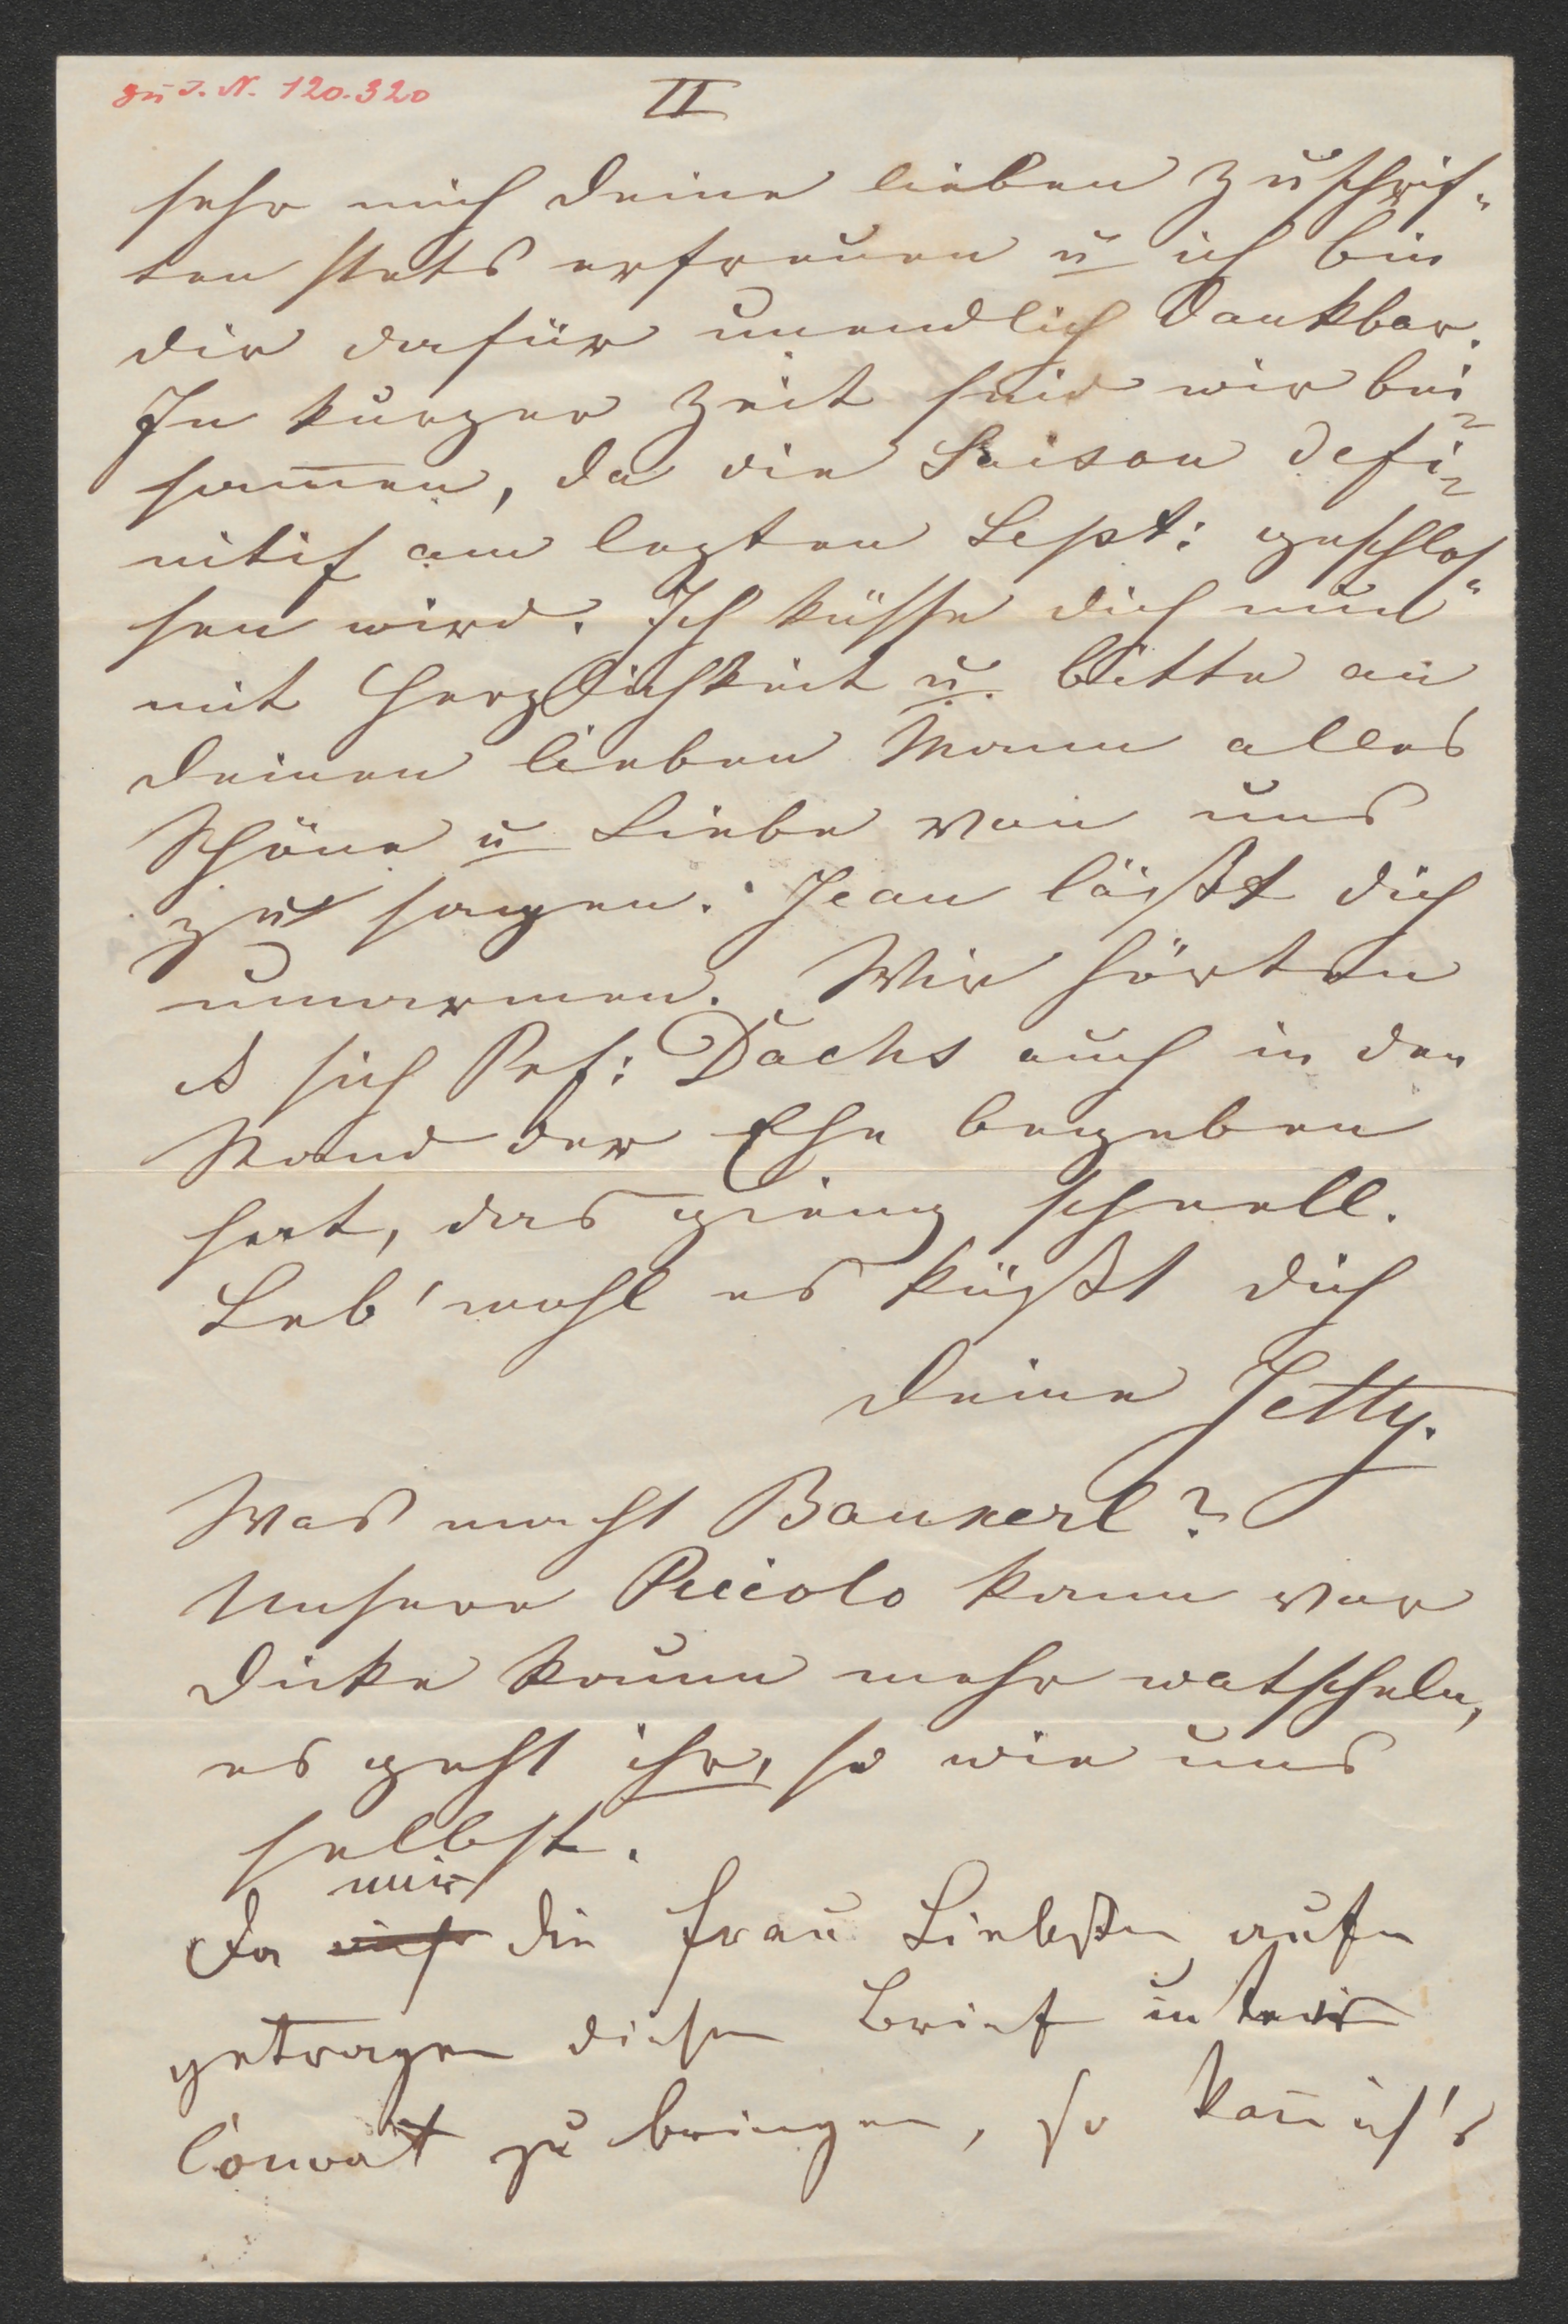 zu I. N. 120.320
II
sehr mich deine lieben Zuschrif-
ten stets erfreuen u ich bin
dir dafür unendlich dankbar.
In kurzer Zeit sind wir bei-
sam̅en, da die Saison defi-
nitif am lezten Sept: geschlos-
sen wird. Ich küsse dich nun
mit Herzlichkeit u. bitte an
deinen lieben Mann alles
Schöne u Liebe von uns
zu sagen. Jean läßt dich
umarmen. Wir hörten
sich Prf: Dachs auch in den
Stand der Ehe begeben
hat, das gieng schnell.
Leb' wohl es küßt dich
deine Jetty.
Was macht Baukerl?
Unsere Piccolo kann vor
Dicke kaum mehr watscheln,
es geht ihr, so wie uns
selbst.
mir
Da die Frau Liebste aufge-
getragen diesen Brief in
Couvat zu bringen, so kan̅ ich's